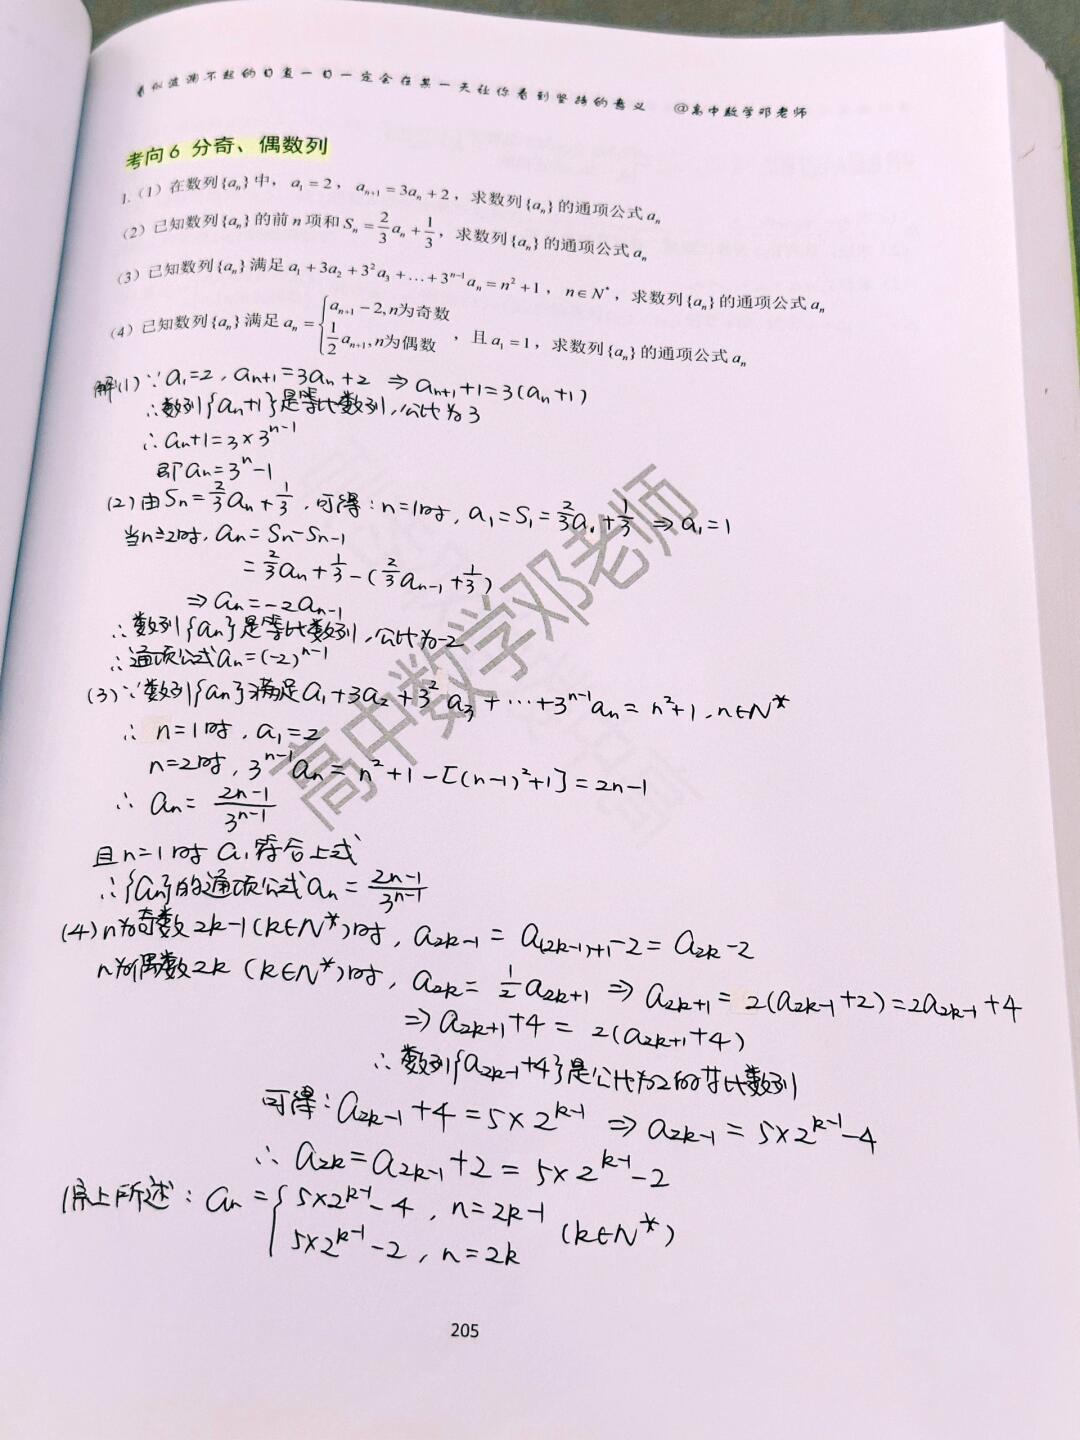 看似波澜不起的日复一日一定会在某一天让你看到坚持的意义 @高中数学邓老师
考向6 分奇、偶数列
1.（1）在数列{aₙ}中，a₁=2，aₙ₊₁=3aₙ+2，求数列{aₙ}的通项公式aₙ
（2）已知数列{aₙ}的前n项和Sₙ=2/3aₙ+1/3，求数列{aₙ}的通项公式aₙ
（3）已知数列{aₙ}满足a₁+3a₂+3²a₃+…+3ⁿ⁻¹aₙ=n²+1，n∈N*，求数列{aₙ}的通项公式aₙ
（4）已知数列{aₙ}满足aₙ={aₙ₊₁-2,n为奇数 1/2aₙ₊₁,n为偶数，且a₁=1，求数列{aₙ}的通项公式aₙ
解(1)∵a₁=2，aₙ₊₁=3aₙ+2 ⇒aₙ₊₁+1=3(aₙ+1)
∴数列{aₙ+1}是等比数列，公比为3
∴aₙ+1=3×3ⁿ⁻¹
即aₙ=3ⁿ-1
(2)由Sₙ=2/3aₙ+1/3，可得：n=1时，a₁=S₁=2/3a₁+1/3 ⇒a₁=1
当n≥2时，aₙ=Sₙ-Sₙ₋₁
=2/3aₙ+1/3-(2/3aₙ₋₁+1/3)
⇒aₙ=-2aₙ₋₁
∴数列{aₙ}是等比数列，公比为-2
∴通项公式aₙ=(-2)ⁿ⁻¹
(3)∵数列{aₙ}满足a₁+3a₂+3²a₃+…+3ⁿ⁻¹aₙ=n²+1，n∈N*
∴ n=1时，a₁=2
n=2时，3ⁿ⁻¹aₙ=n²+1-[(n-1)²+1]=2n-1
∴ aₙ=(2n-1)/3ⁿ⁻¹
且n=1时 a₁符合上式
∴{aₙ}的通项公式aₙ=(2n-1)/3ⁿ⁻¹
(4)n为奇数2k-1(k∈N*)时，a₂ₖ₋₁=a₍₂ₖ₋₁₎₊₁-2=a₂ₖ-2
n为偶数2k（k∈N*)时，a₂ₖ=1/2a₂ₖ₊₁ ⇒a₂ₖ₊₁=2(a₂ₖ₋₁+2)=2a₂ₖ₋₁+4
⇒a₂ₖ₊₁+4=2(a₂ₖ₊₁+4)
∴数列{a₂ₖ₋₁+4}是公比为2的等比数列
可得：a₂ₖ₋₁+4=5×2ᵏ⁻¹ ⇒a₂ₖ₋₁=5×2ᵏ⁻¹-4
∴ a₂ₖ=a₂ₖ₋₁+2=5×2ᵏ⁻¹-2
综上所述：aₙ={5×2ᵏ⁻¹-4，n=2k-1
5×2ᵏ⁻¹-2，n=2k (k∈N*)
高中数学邓老师
205